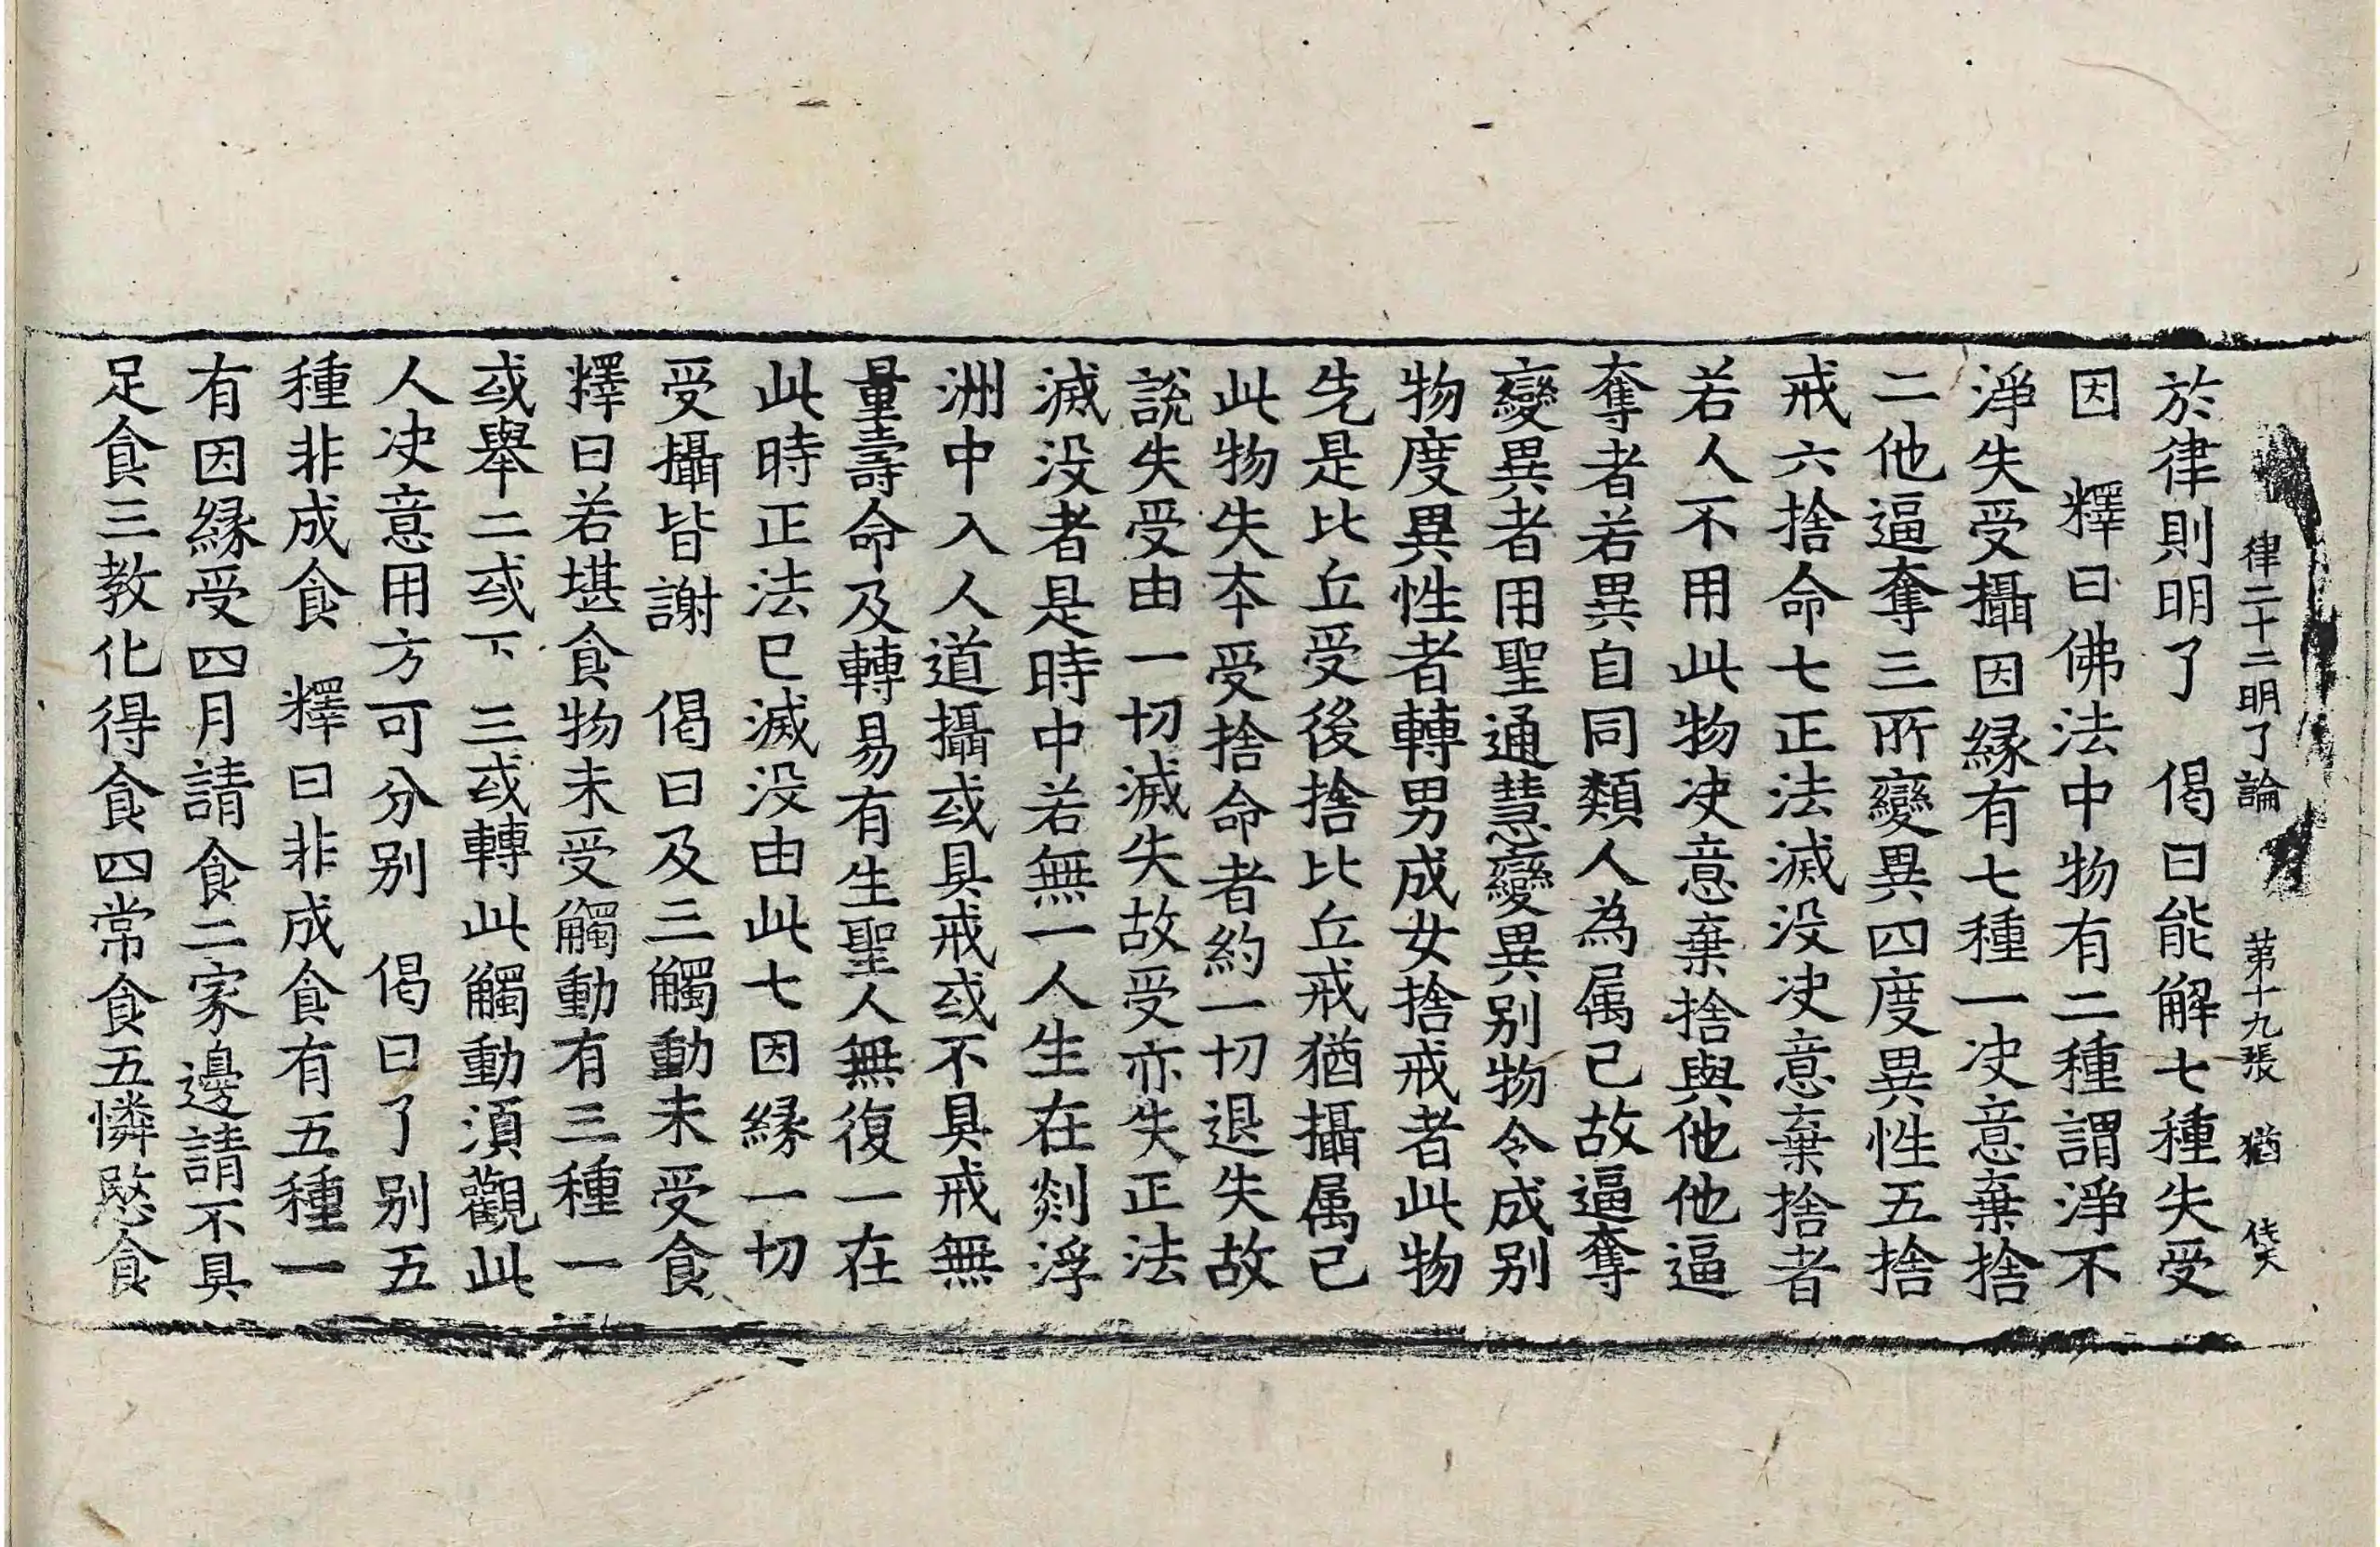 律二十二明了論　第十九張　猶
於律則明了　偈曰能解七種失受
因　釋曰佛法中物有二種謂淨不
淨失受攝因緣有七種一决意棄捨
二他逼奪三所變異四度異性五捨
戒六捨命七正法滅没决意棄捨者
若人不用此物决意棄捨與他他逼
奪者若異自同類人為属己故逼奪
變異者用聖通慧變異別物令成別
物度異性者轉男成女捨戒者此物
先是比丘受後捨比丘戒猶攝属己
此物失本受捨命者約一切退失故
說失受由一切滅失故受亦失正法
滅没者是時中若無一人生在剡浮
洲中入人道攝或具戒或不具戒無
量壽命及轉易有生聖人無復一在
此時正法已滅没由此七因緣一切
受攝皆謝　偈曰及三觸動未受食
釋曰若堪食物未受觸動有三種一
或舉二或下三或轉此觸動湏觀此
人决意用方可分别　偈曰了别五
種非成食　釋曰非成食有五種一
有因緣受四月請食二家邊請不具
足食三教化得食四常食五憐愍食